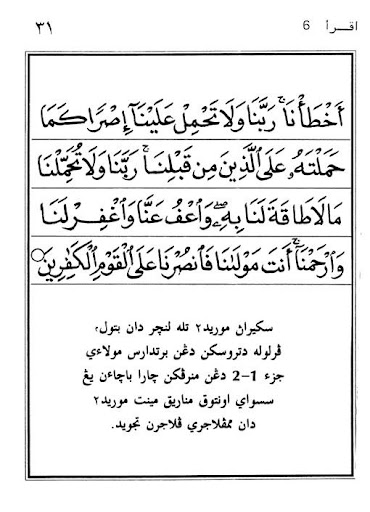 اقرأ 6 ٣١
أَخْطَأْنَا ۚ رَبَّنَا وَلَا تَحْمِلْ عَلَيْنَآ إِصْرًا كَمَا
حَمَلْتَهُۥ عَلَى ٱلَّذِينَ مِن قَبْلِنَا ۚ رَبَّنَا وَلَا تُحَمِّلْنَا
مَا لَا طَاقَةَ لَنَا بِهِۦ ۖ وَٱعْفُ عَنَّا وَٱغْفِرْ لَنَا
وَٱرْحَمْنَآ ۚ أَنتَ مَوْلَىٰنَا فَٱنصُرْنَا عَلَى ٱلْقَوْمِ ٱلْكَٰفِرِينَ
سكيراڽ موريد٢ تله لنچر دان بتول٢
ڤرلوله دتروسكن دڠن برتدارس مولاءي
جزء 1–2 دڠن منرڤكن چارا باچاءن يڠ
سسواي اونتوق مناريق مينت موريد٢
دان ممڤلاجري ڤلاجرن تجويد.